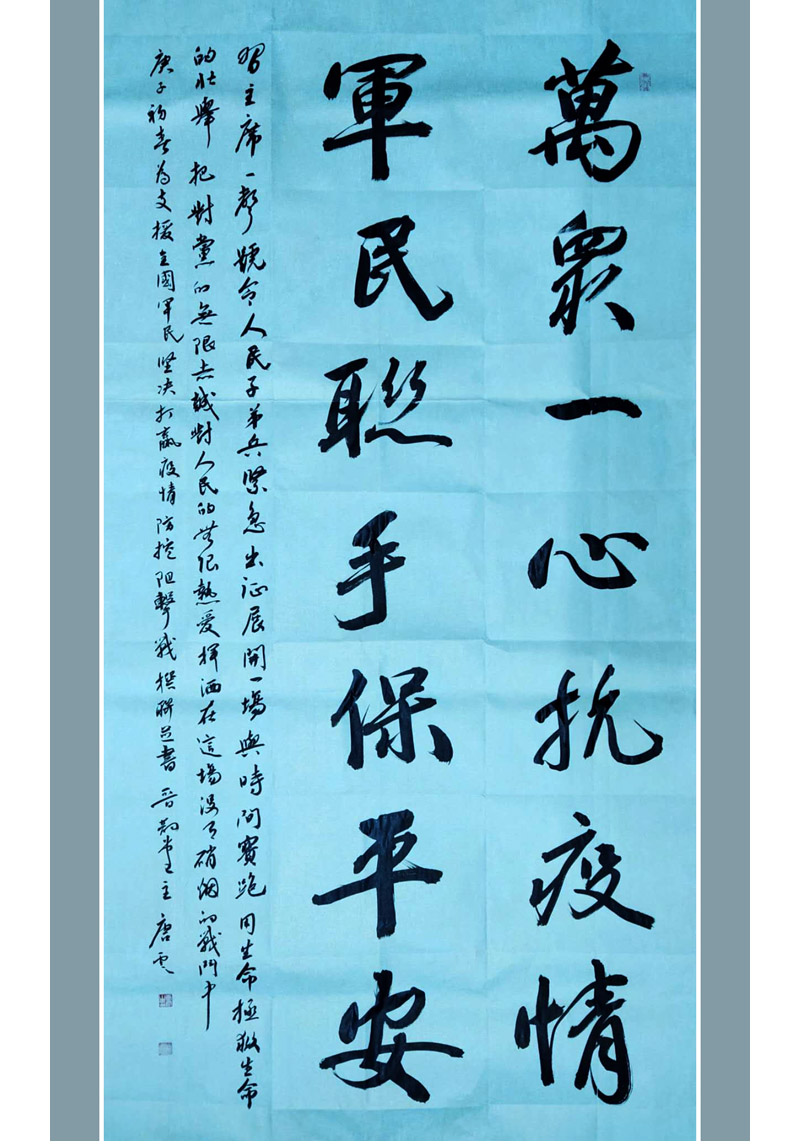 萬眾一心抗疫情
軍民聯手保平安
習主席一聲號令人民子弟兵緊急出征展開一場與時间賽跑用生命極救生命
的壮舉把對黨的無限忠誠對人民的無限熱爱揮洒在這場没有硝烟的戰鬥中
庚子初春為支援全國军民坚决打赢疫情防控阻擊战撰联并書 晋韵堂主 唐云